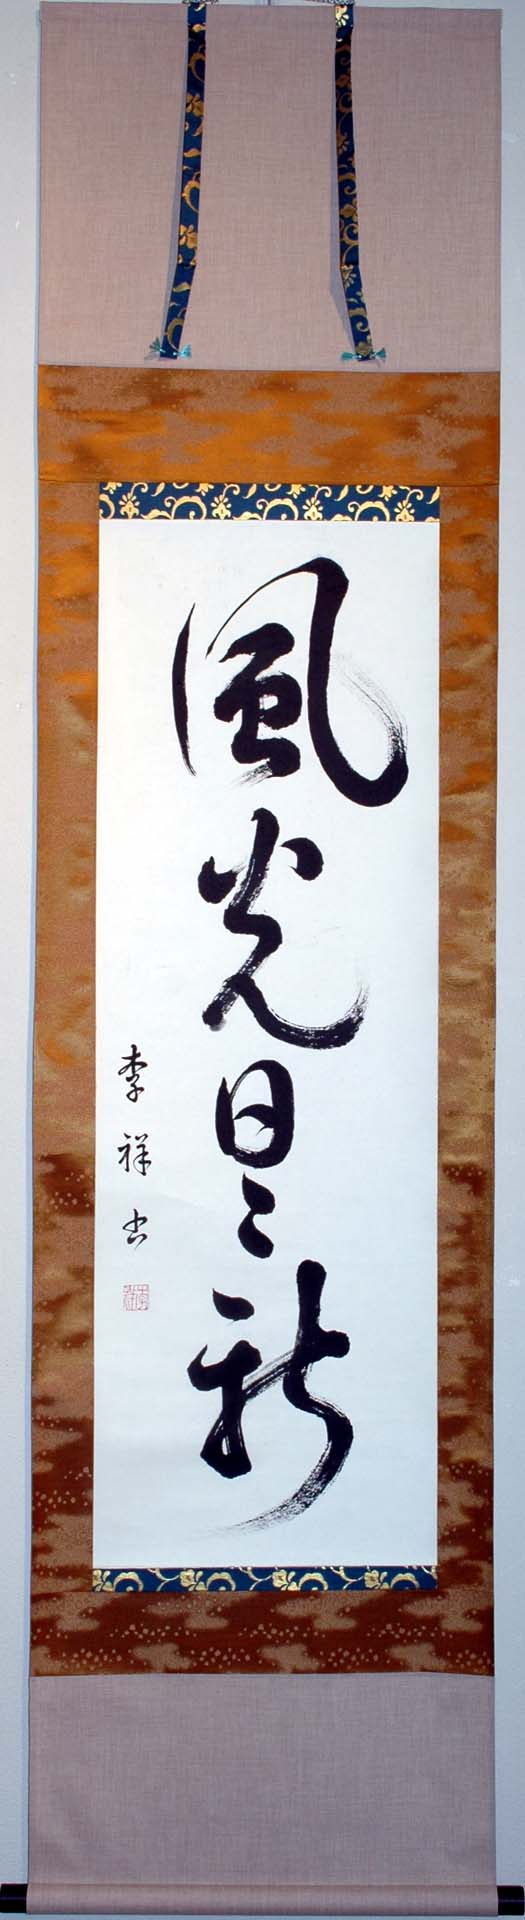 風光日々新
李祥書